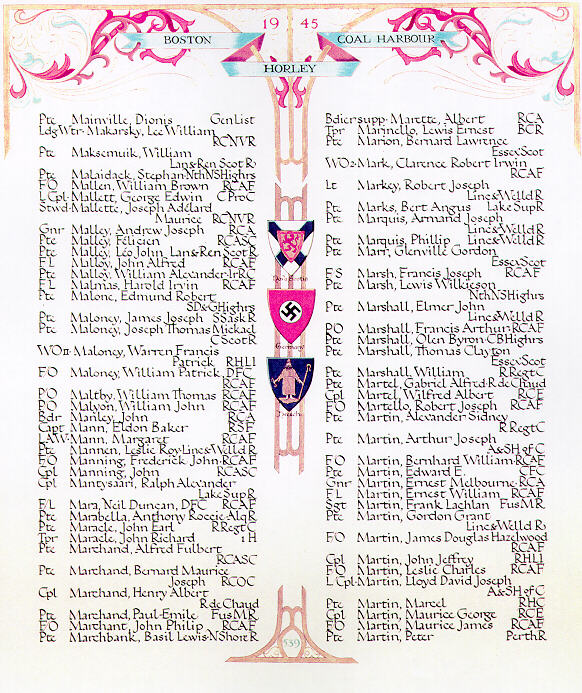 19 45
BOSTON
COAL HARBOUR
HORLEY
Pte Mainville, Dionis Gen List
Ldg Wtr Makarsky, Lee William
RCNVR
Pte Maksemuik, William
Lan & Ren Scot R
Pte Malaidack, Stephan Nth NS Highrs
F O Mallen, William Brown RCAF
L Cpl Mallett, George Edwin C Pro C
Stwd Mallette, Joseph Adélard
Maurice RCNVR
Gnr Malley, Andrew Joseph RCA
Pte Malley, Félicien RCASC
Pte Malley, Léo John Lan & Ren Scot R
F L Malloy, John Alfred RCAF
Pte Malloy, William Alexander Ir R C
F L Malmas, Harold Irvin RCAF
Pte Malone, Edmund Robert
SD & G Highrs
Pte Maloney, James Joseph S Sask R
Pte Maloney, Joseph Thomas Mickael
C Scot R
WO II Maloney, Warren Francis
Patrick RHLI
F O Maloney, William Patrick, DFC
RCAF
P O Maltby, William Thomas RCAF
P O Malyon, William John RCAF
Bdr Manley, John RCA
Capt Mann, Eldon Baker RSF
LAW Mann, Margaret RCAF
Pte Mannen, Leslie Roy Linc & Welld R
F O Manning, Frederick John RCAF
Cpl Manning, John RCASC
Cpl Mantysaari, Ralph Alexander
Lake Sup R
F/L Mara, Neil Duncan, DFC RCAF
Pte Marabella, Anthony Roccie Alq R
Pte Maracle, John Earl R Regt C
Tpr Maracle, John Richard 1 H
Pte Marchand, Alfred Fulbert
RCASC
Pte Marchand, Bernard Maurice
Joseph RCOC
Cpl Marchand, Henry Albert
R de Chaud
Pte Marchand, Paul-Emile Fus M R
F O Marchant, John Philip RCAF
Pte Marchbank, Basil Lewis N Shore R
Nova Scotia
Germany
Utrecht
539
Bdier supp Marette, Albert RCA
Tpr Marinello, Lewis Ernest BCR
Pte Marion, Bernard Lawrence
Essex Scot
WO2 Mark, Clarence Robert Irwin
RCAF
Lt Markey, Robert Joseph
Linc & Welld R
Pte Marks, Bert Angus Lake Sup R
Pte Marquis, Armand Joseph
Linc & Welld R
Pte Marquis, Phillip Linc & Welld R
Pte Marr, Glenville Gordon
Essex Scot
F S Marsh, Francis Joseph RCAF
Pte Marsh, Lewis Wilkieson
Nth NS Highrs
Pte Marshall, Elmer John
Linc & Welld R
P O Marshall, Francis Arthur RCAF
Pte Marshall, Olen Byron CB Highrs
Pte Marshall, Thomas Clayton
Essex Scot
Pte Marshall, William R Regt C
Pte Martel, Gabriel Alfred R de Chaud
Cpl Martel, Wilfred Albert RCE
F O Martello, Robert Joseph RCAF
Pte Martin, Alexander Sidney
R Regt C
Pte Martin, Arthur Joseph
A & SH of C
F O Martin, Bernhard William RCAF
Pte Martin, Edward E. CFC
Gnr Martin, Ernest Melbourne RCA
F L Martin, Ernest William RCAF
Sgt Martin, Frank Lachlan Fus M R
Pte Martin, Gordon Grant
Linc & Welld R
F O Martin, James Douglas Hazelwood
RCAF
Cpl Martin, John Jeffrey RHLI
F O Martin, Leslie Charles RCAF
L Cpl Martin, Lloyd David Joseph
A & SH of C
Pte Martin, Marcel RHC
Cpl Martin, Maurice George RCE
F O Martin, Maurice James RCAF
Pte Martin, Peter Perth R